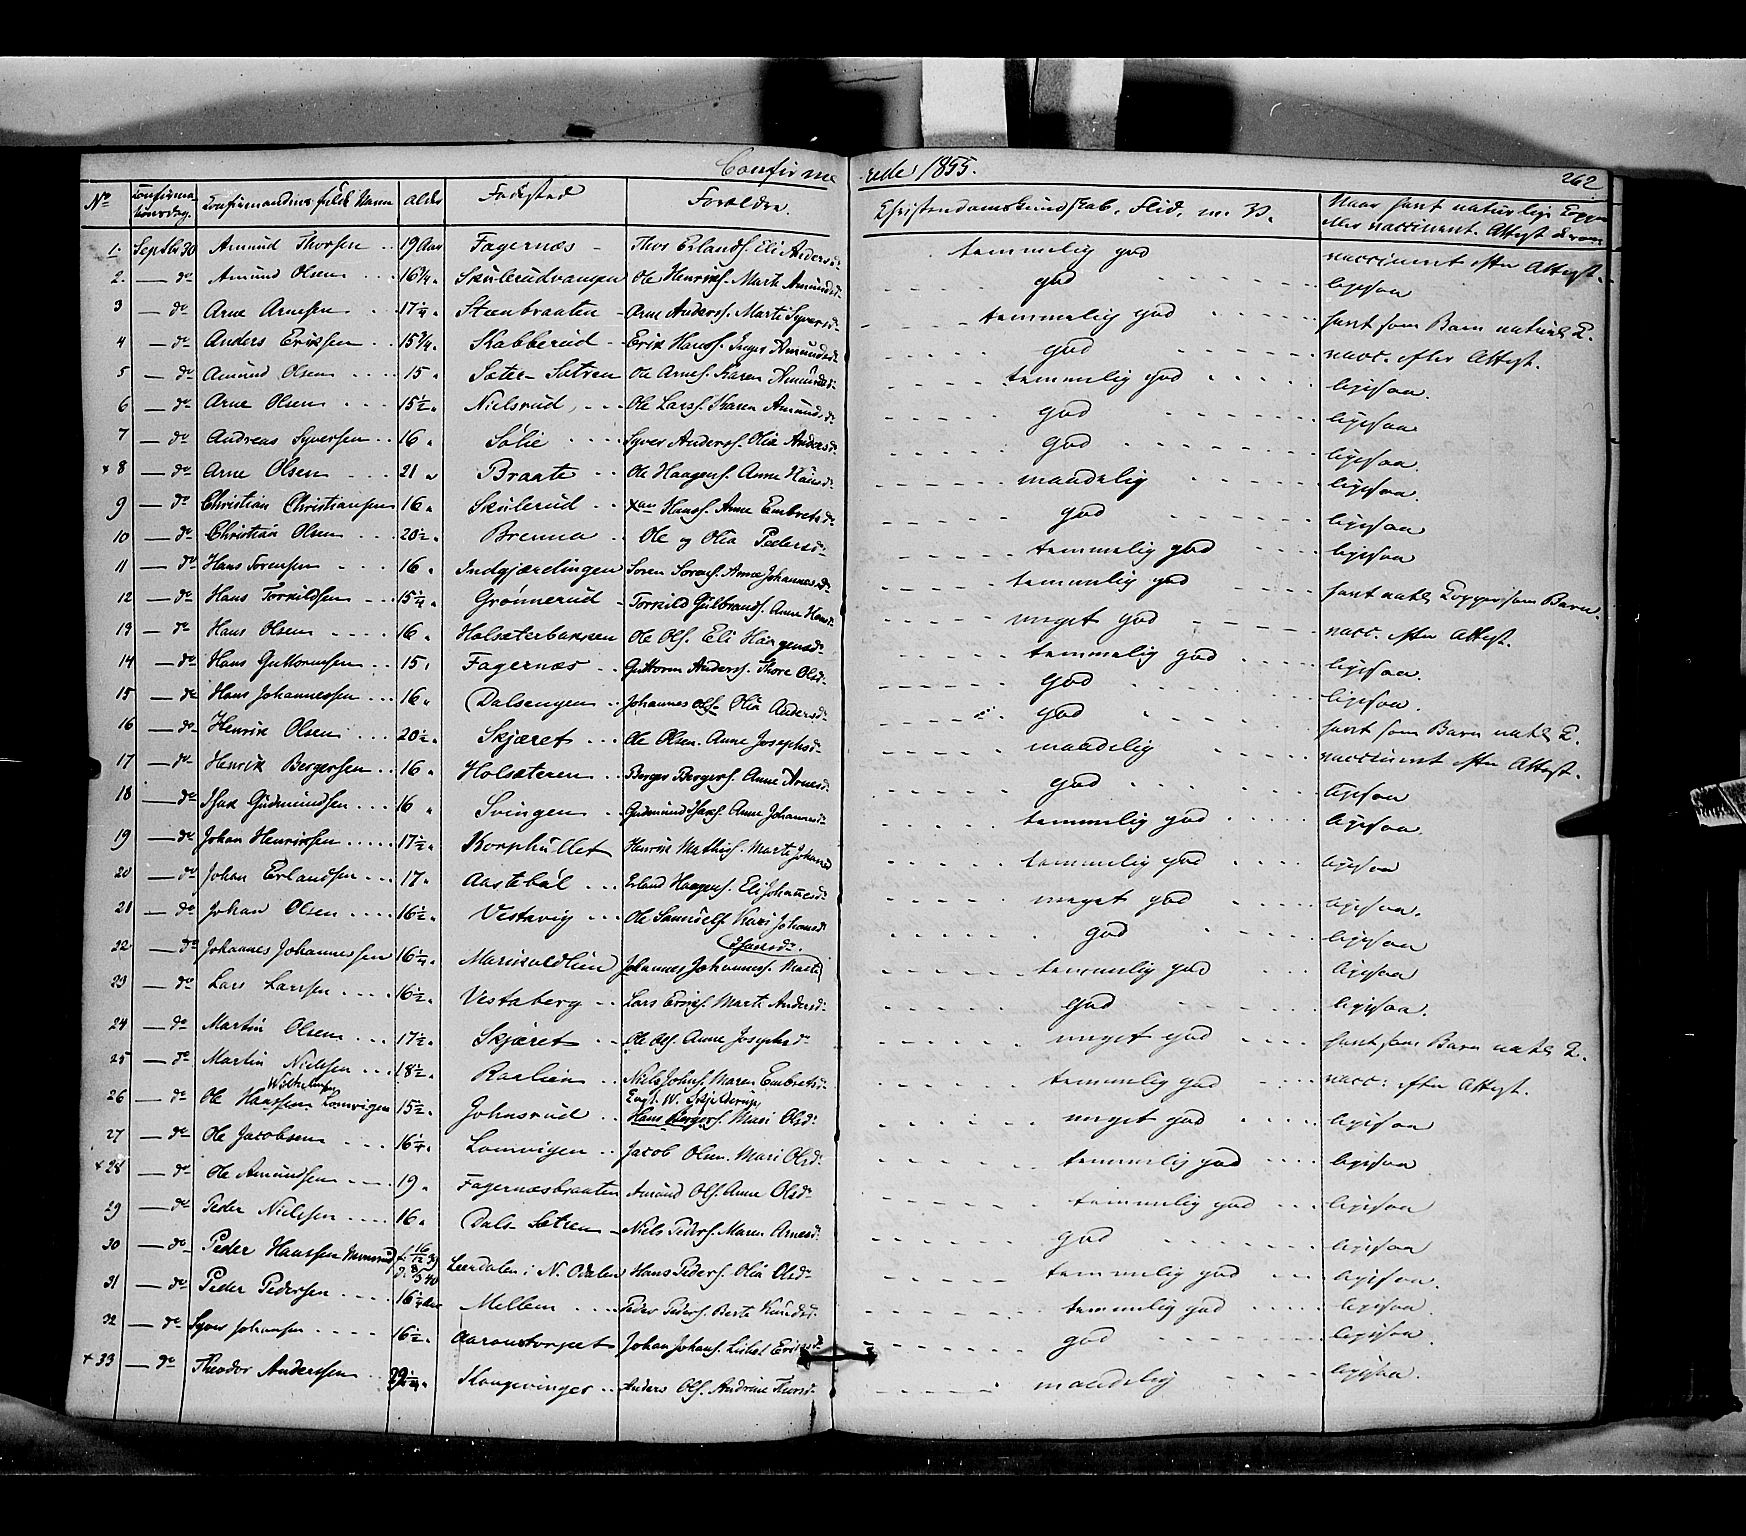 Confirmerede 1855.
262
No Confirmationsdag. Confirmandens fulde Navn Alder Fødested Forældre. Christendomskundskab, Flid, m. V. Naar havt naturlige Kopper eller vaccineret. Attest derom
1. Septbr 30 Amund Thorsen 19 Aar Fagernæs Thor Erlands. Eli Andersd. temmelig god vaccineret efter Attest.
2. — do Amund Olsen 16 1/4 Skulerudvangen Ole Henriks. Marte Amundsd. god ligesaa
3 — do Arne Arnesen 17 1/4 Steenbraaten Arne Anders. Marte Syversd. temmelig god havt som Barn naturl. K.
4 — do Anders Eriksen 15 3/4 Skabberud Erik Hans. Inger Amundsd. god vacc. efter Attest.
5 — do Amund Olsen 15 Sæter-Sætren Ole Arnes. Karen Amundsd. temmelig god ligesaa.
6 — do Arne Olsen 15 1/2 Nielsrud Ole Lars. Karen Amundsd. god ligesaa
7 — do Andreas Syversen 16 Sølie Syver Anders. Olia Andersd. god ligesaa.
+ 8 — do Arne Olsen 21 Braate Ole Haagens. Anne Hansd. maadelig ligesaa.
9 — do Christian Christiansen 16 Skulerud Xan Hans. Anne Embretsd. god ligesaa
10 — do Christian Olsen 20 1/2 Brenna Ole og Olia Pedersd. temmelig god ligesaa
11 — do Hans Sørensen 16 Indgjærdingen Søren Sørens. Anne Johannesd. temmelig god havt natl. Kopper som Barn.
12 — do Hans Torkildsen 15 1/4 Grønnerud Torkild Gulbrands. Anne Hansd. meget god vacc. efter Attest.
13 — do Hans Olsen 16 Holsæterbakken Ole Ols. Eli Haagensd. temmelig god ligesaa.
14 — do Hans Guttormsen 15 Fagernæs Guttorm Anders. Thore Olsd. god ligesaa.
15 — do Hans Johannessen 16 Dalsengen Johannes Ols. Olia Andersd. god havt som Barn natl. K.
16 — do Henrik Olsen 20 1/2 Skjæret Ole Olsen. Anne Josephsd. maadelig vaccineret efter Attest.
17 — do Henrik Bergersen 16 Holsæteren Berger Bergers. Anne Arnesd. god ligesaa
18 — do Isak Gudmundsen 16 Svingen Gudmund Isaks. Anne Johannesd. temmelig god ligesaa.
19 — do Johan Henriksen 17 1/2 Korphullet Henrik Mathis. Marte Johansd. temmelig god ligesaa
20 — do Johan Erlandsen 17 Aastebøl Erland Haagens. Eli Johannesd. meget god ligesaa.
21 — do Johan Olsen 16 1/2 Vestavig Ole Samuels. Kari Johansd. god ligesaa
22 — do Johannes Johannessen 16 1/4 Johannes Johanness. Marte temmelig god ligesaa
23 — do Lars Larsen 16 1/2 Vestaberg Lars Eriks. Marte Andersd. god ligesaa.
24 — do Martin Olsen 17 1/2 Skjæret Ole Ols. Anne Josephsd. meget god havt som Barn natl. K.
25 — do Martin Nielsen 18 1/2 Niels Johns. Maren Embretsd. temmelig god vacc. efter Attest.
26 — do Ole Hanssen Wilhelmsen Lomvigen 15 1/2 Johnsrud Engl. W. Skjelderup Hans Bergers. Mari Olsd. meget god ligesaa
27 — do Ole Jacobsen 16 1/4 Lomvigen Jacob Olsen. Mari Olsd. temmelig god ligesaa
+ 28 — do Ole Amundsen 19 Fagernæsbraaten Amund Ols. Anne Olsd. temmelig god ligesaa
29 — do Peder Nielsen 16 Dals-Sætren Niels Peders. Maren Arnesd. god ligesaa
30 — do Peder Hanssen f. 16/12 39 d. 8/3 40 Leerdalen i N. Odalen Hans Peders. Olia Olsd. temmelig god ligesaa.
31 — do Peder Pedersen 16 1/4 Aar Mellem Peder Peders. Berte Knudsd. temmelig god ligesaa.
32 — do Syver Johansen 16 1/2 Aaronstorpet Johan Johans. Lisbet Eriksd. god ligesaa.
+ 33 — do Theodor Anderssen Kongsvinger Anders Ols. Andrine Thorsd. maadelig ligesaa.